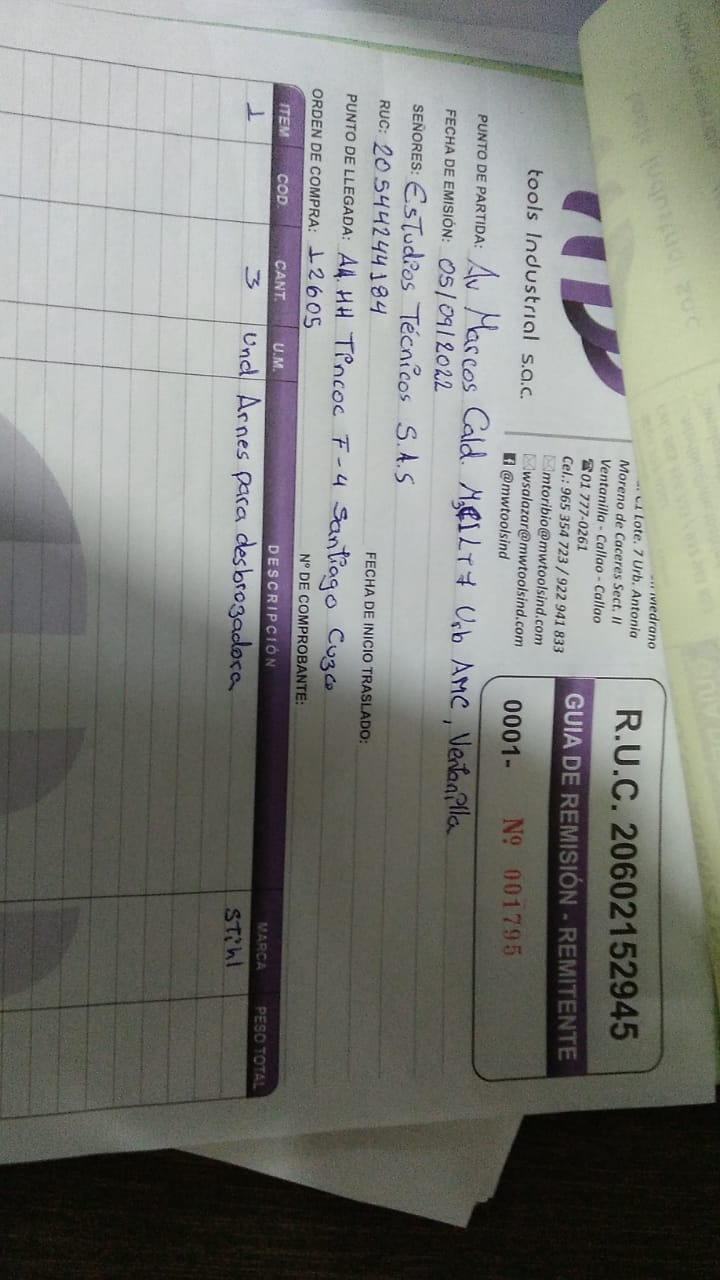 tools Industrial s.a.c.
Lote. 7 Urb. Antonia
Moreno de Caceres Sect. II
Ventanilla - Callao - Callao
☎01 777-0261
Cel.: 965 354 723 / 922 941 833
✉mtoribio@mwtoolsind.com
✉wsalazar@mwtoolsind.com
@mwtoolsind
R.U.C. 20602152945
GUIA DE REMISIÓN - REMITENTE
0001- Nº 001795
PUNTO DE PARTIDA: Av Marcos Cald. Urb AMC, Ventanilla
FECHA DE EMISIÓN: 05/09/2022
SEÑORES: Estudios Técnicos S.A.S
RUC: 20544244184 FECHA DE INICIO TRASLADO:
PUNTO DE LLEGADA: AA.HH Tincoc F-4 Santiago Cuzco
ORDEN DE COMPRA: 12605 Nº DE COMPROBANTE:
ITEM COD. CANT. U.M. DESCRIPCIÓN MARCA PESO TOTAL
1 3 Und Arnes para desbrozadora Stihl